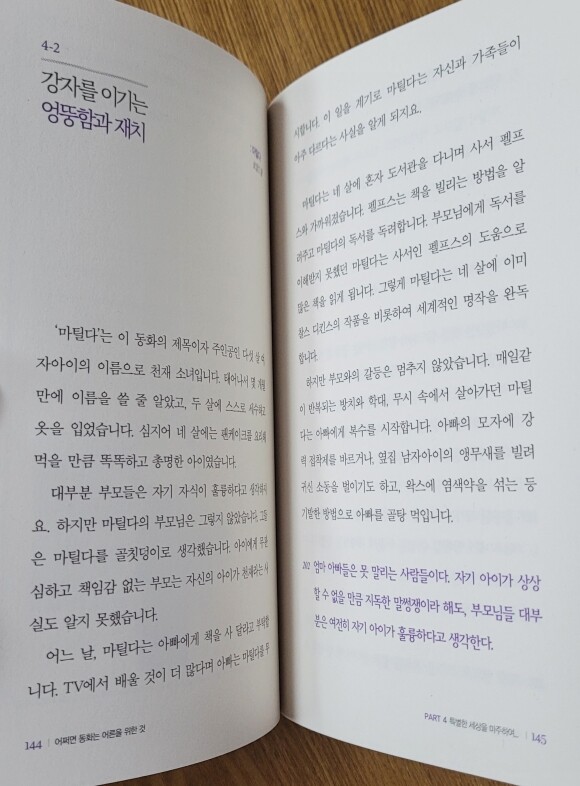 4-2
강자를 이기는
엉뚱함과 재치
'마틸다'는 이 동화의 제목이자 주인공인 다섯 살
자아이의 이름으로 천재 소녀입니다. 태어나서 몇
만에 이름을 쓸 줄 알았고, 두 살에 스스로 세수하고
옷을 입었습니다. 심지어 네 살에는 팬케이크를 요리해
먹을 만큼 똑똑하고 총명한 아이였습니다.
대부분 부모들은 자기 자식이 훌륭하다고 생각하지
요. 하지만 마틸다의 부모님은 그렇지 않았습니다. 그들
은 마틸다를 골칫덩이로 생각했습니다. 아이에게 무관
심하고 책임감 없는 부모는 자신의 아이가 천재라는 사
실도 알지 못했습니다.
어느 날, 마틸다는 아빠에게 책을 사 달라고 부탁합
니다. TV에서 배울 것이 더 많다며 아빠는 마틸다를 무
144 | 어쩌면 동화는 어른을 위한 것
시합니다. 이 일을 계기로 마틸다는 자신과 가족들이
아주 다르다는 사실을 알게 되지요.
마틸다는 네 살에 혼자 도서관을 다니며 사서 펠프
스와 가까워졌습니다. 펠프스는 책을 빌리는 방법을 알
려주고 마틸다의 독서를 독려합니다. 부모님에게 독서를
이해받지 못했던 마틸다는 사서인 펠프스의 도움으로
많은 책을 읽게 됩니다. 그렇게 마틸다는 네 살에 이미
찰스 디킨스의 작품을 비롯하여 세계적인 명작을 완독
합니다.
하지만 부모와의 갈등은 멈추지 않았습니다. 매일같
이 반복되는 방치와 학대, 무시 속에서 살아가던 마틸
다는 아빠에게 복수를 시작합니다. 아빠의 모자에 강
력 접착제를 바르거나, 옆집 남자아이의 앵무새를 빌려
귀신 소동을 벌이기도 하고, 왁스에 염색약을 섞는 등
기발한 방법으로 아빠를 골탕 먹입니다.
202 엄마 아빠들은 못 말리는 사람들이다. 자기 아이가 상상
할 수 없을 만큼 지독한 말썽쟁이라 해도, 부모님들 대부
분은 여전히 자기 아이가 훌륭하다고 생각한다.
PART 4 특별한 세상을 마주하여... | 145